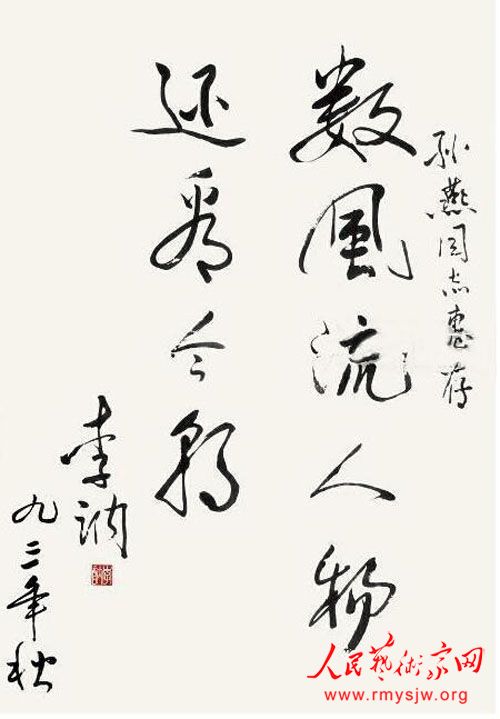 孙燕同志惠存
数风流人物
还看今朝
李讷
九三年秋
人民藝術家网
www.rmysjw.org